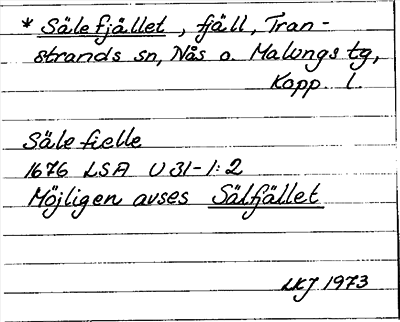 * Sälefjället, fjäll, Tran-
strands sn, Nås o. Malungs tg,
Kopp. l.
Säle fielle
1676 LSA U 31-1:2
Möjligen avses Sälfjället
LKJ 1973